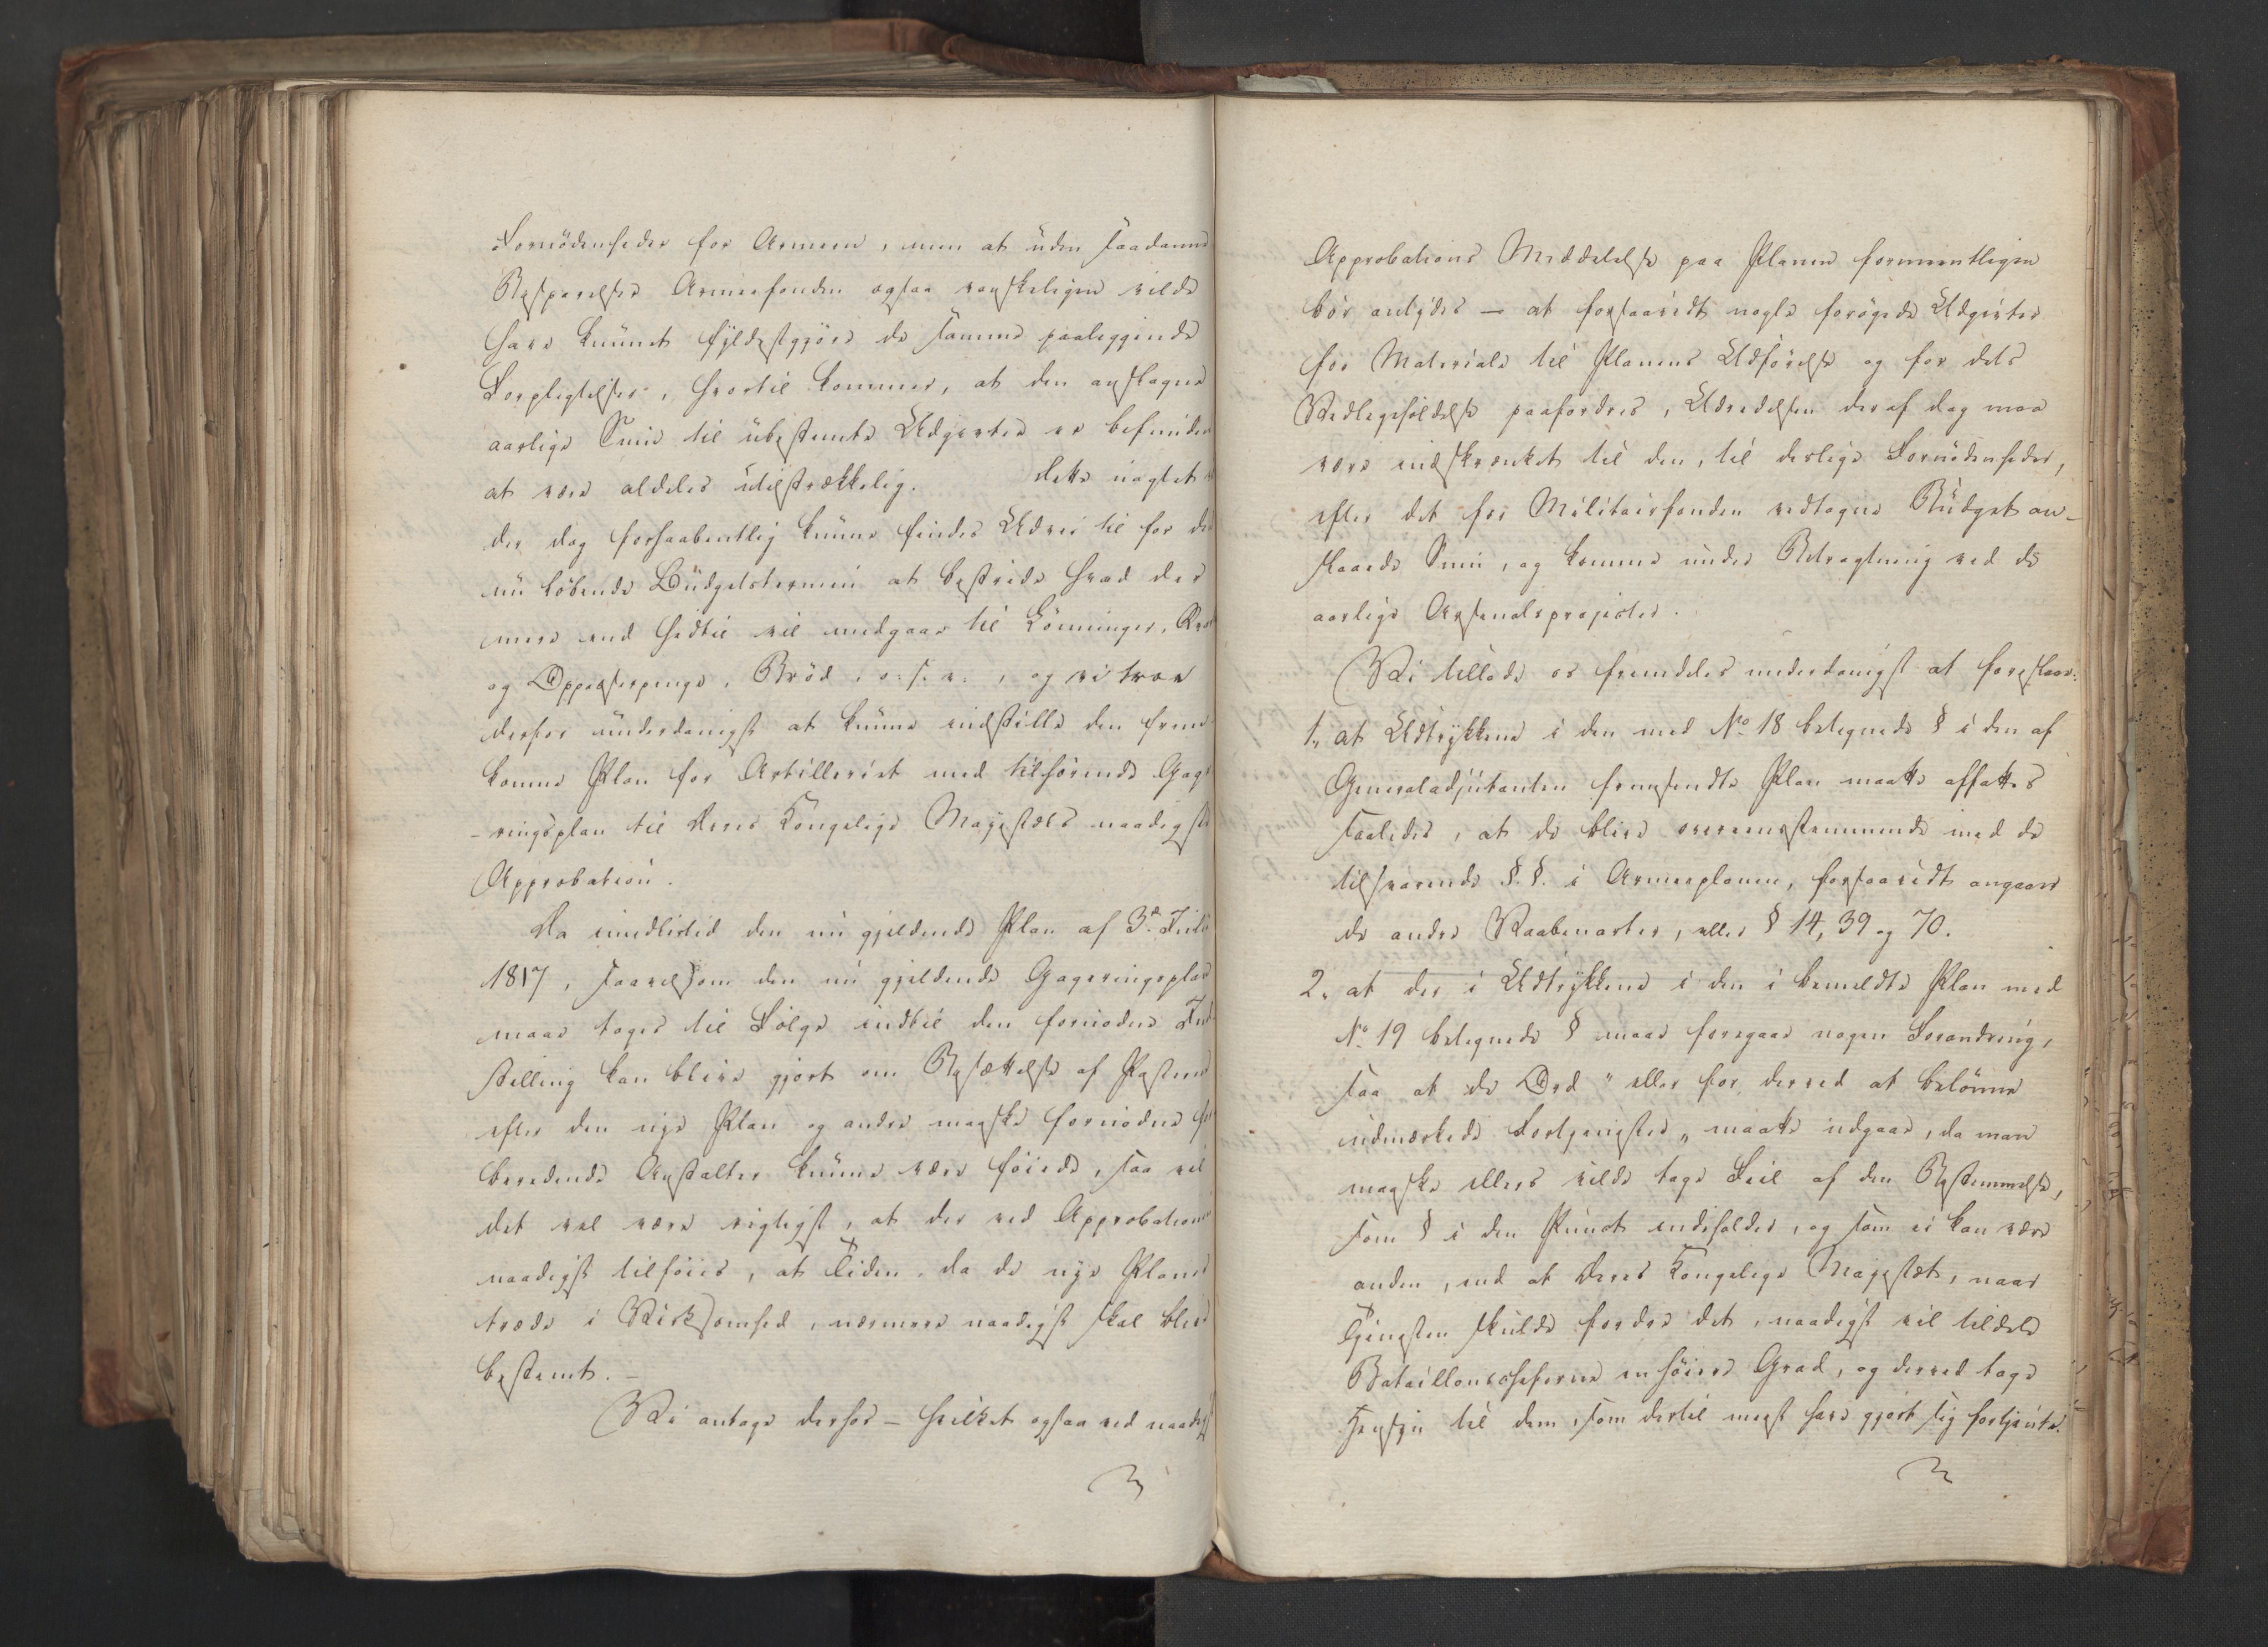 Fornödenheder for Armeen, men at uden saadanne
Besparelser Armeefonden ogsaa vanskeligen vilde
have kunnet fyldestgjöre de samme paaliggende
Forpligtelser, hvortil kommer, at den anslagne
aarlige Sum til ubestemte Udgivter er befunden
at være aldeles utilstrækkelig. Dette uagtet
der dog forhaabentlig kunne findes Udvei til for den
nu löbende Budgetstermin at bestride hvad der
mere end hidtil vil medgaae til Lönninger,
og Oppasserpenge, Bröd, o. s. v., og vi troe
derfor underdanigst at kunne indstille den frem-
komne Plan for Artilleriet med tilhörende Gage-
-ringsplan til Deres Kongelige Majestæts naadigste
Approbation.
Da imidlertid den nu gjeldende Plan af 3de Juli
1817, saavelsom den nu gjeldende Gageringsplan
maae tages til Fölge indtil den fornödne Ind-
stilling kan blive gjort om Besættelse af Posterne
efter den nye Plan og andre maaske fornödne for-
beredende Anstalter kunne være föiede, saa vil
det vel være rigtigst, at der ved Approbationen
naadigst tilföies, at Tiden, da de nye Planer
træde i Virksomhed, nærmere naadigst skal blive
bestemt. –
Vi antage derfor – hvilket ogsaa ved naadigst
Approbations Meddelelse paa Planen formeentligen
bör antydes – at forsaavidt nogle forögede Udgivter
for Materiale til Planens Udförelse og for dets
Vedligeholdelse paafordres, Udredelsen deraf dog maa
være indskrænket til den, til deslige Fornödenheder,
efter det for Militairfonden vedtagne Budget an-
slaaede Sum, og komme under Betragtning ved de
aarlige Arsenalsprojecter.
Vi tillade os fremdeles underdanigst at foreslaae:
1, at Udtrykkene i den med No 18 betegnede § i den af
Generaladjutanten fremsendte Plan maatte affattes
saaledes, at de blive overeensstemmende med de
tilsvarende §.§. i Armeeplanen, forsaavidt angaaer
de andre Vaabenarter, eller § 14, 39 og 70.
2, at der i Udtrykkene i den i bemeldte Plan med
No 19 betegnede § maae foregaae nogen Forandring,
saa at de Ord "eller for derved at belönne
udmærkede Fortjenester„ maatte udgaae, da man
maaske ellers vilde tage Feil af den Bestemmelse,
som § i den Punct indeholder, og som ei kan være
anden, end at Deres Kongelige Majestæt, naar
Tjenesten skulde fordre det, naadigst vil tildele
Bataillonscheferne en höiere Grad, og derved tage
Hensyn til dem, som dertil meest have gjort sig fortjente.